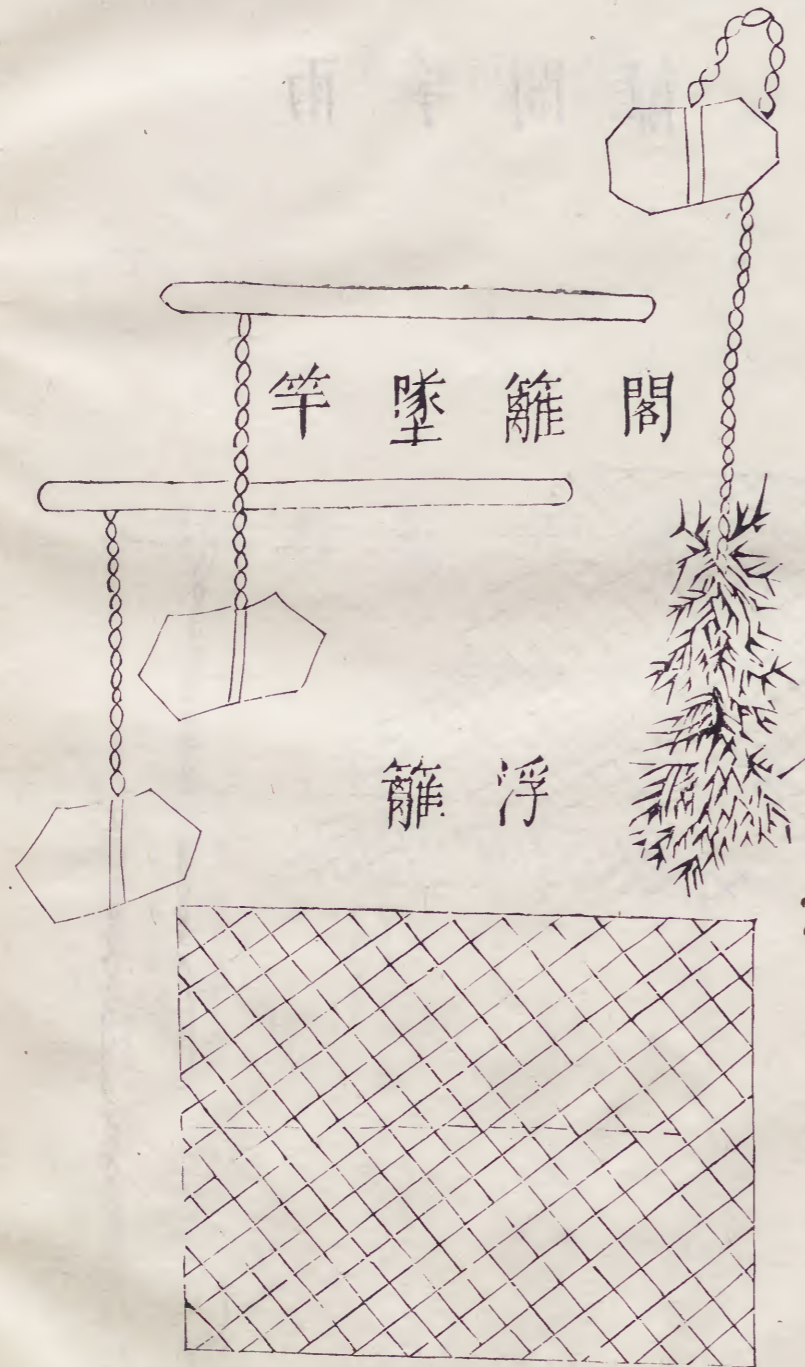 閣籬墜竿
浮籬